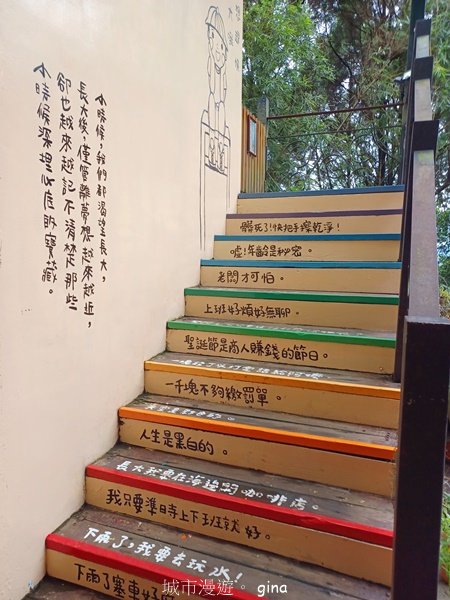 小時候，我們都渴望長大，
長大後，僅管離夢想越來越近，
卻也越來越記不清楚那些
小時候深埋心底的寶藏。
髒死了！快把手擦乾淨！
噓！年齡是秘密。
老闆才可怕。
上班好煩好無聊。
聖誕節是商人賺錢的節日。
一千塊不夠繳罰單。
天空是彩色的。
人生是黑白的。
長大我要在海邊開咖啡店。
我只要準時上下班就好。
下雨了，我要去玩水！
下雨了塞車好
城市漫遊。 gina